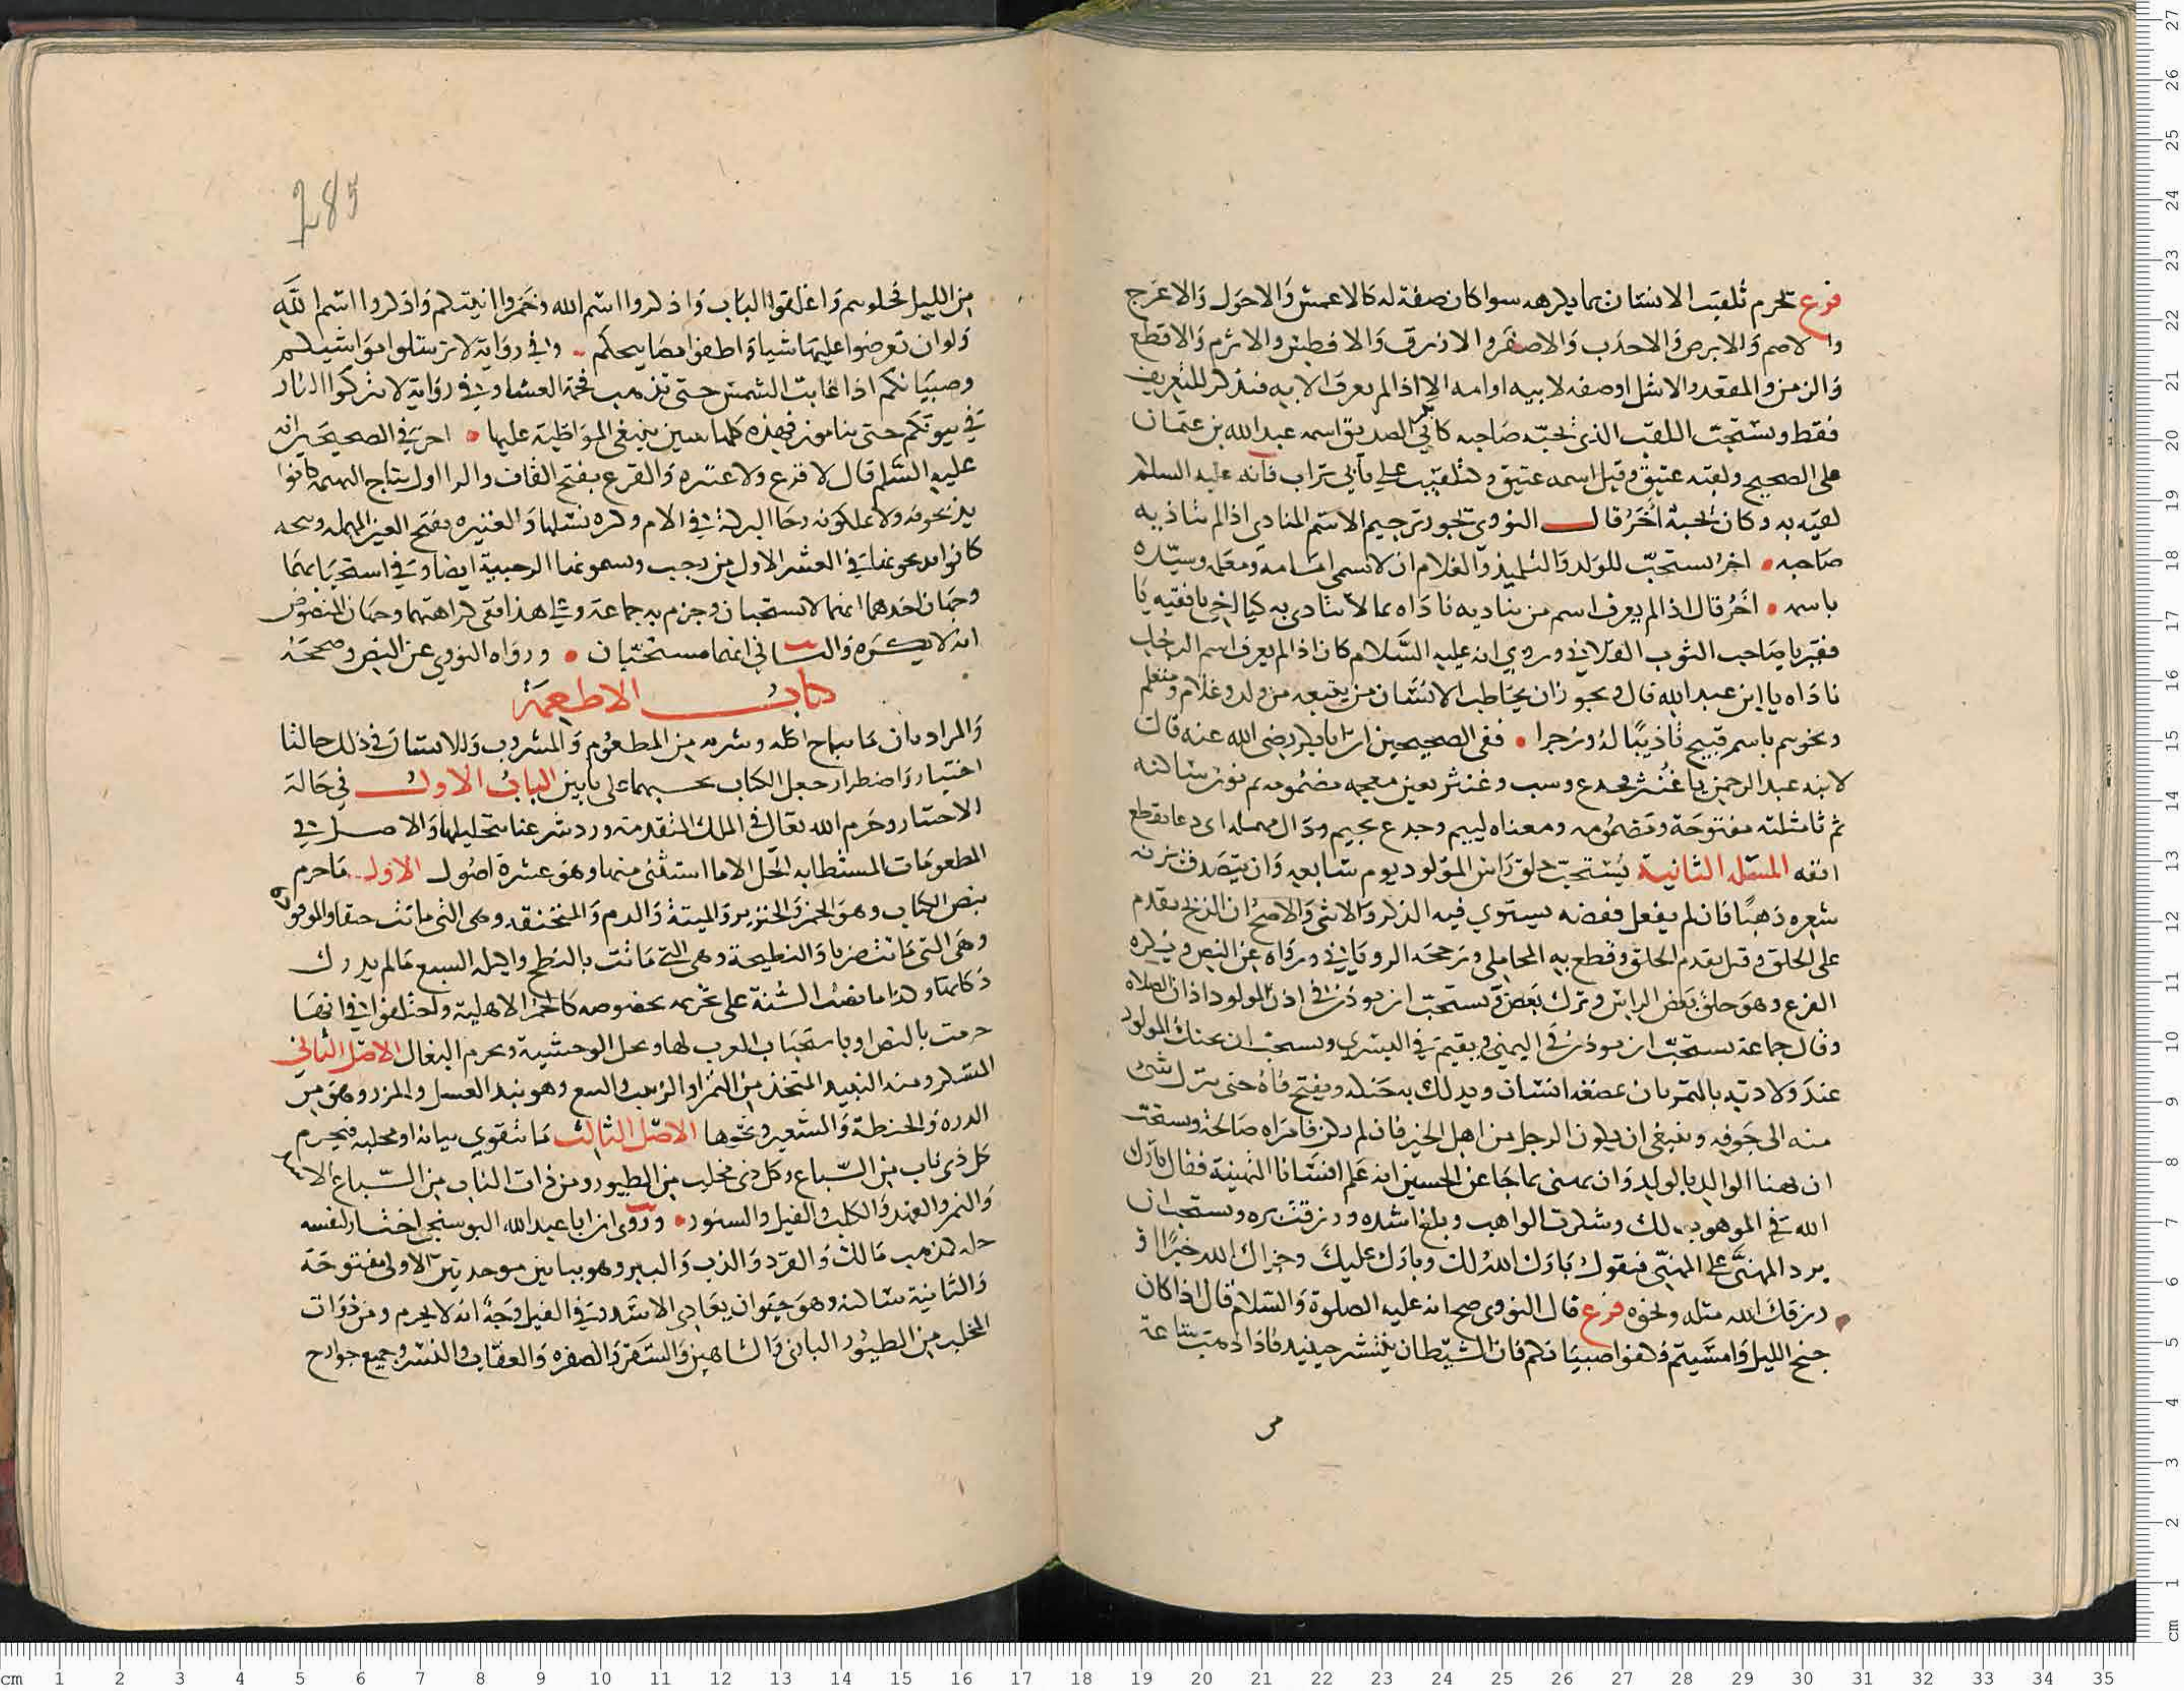 فرع تحرم تلقيب الانسان بما يكرهه سوا كان صفة له كالاعمش والاحول والاعرج
والاصم والابرص والاحدب والاصفر والازرق والافطس والاثرم والاقطع
والزمن والمقعد والاشل او صفه لابيه او امه الا اذا لم يعرف الا به فتذكر للتعريف
فقط ويستحب اللقب الذي يحبه صاحبه كابي بكر الصديق اسمه عبد الله بن عثمان
على الصحيح ولقبه عتيق وقيل اسمه عتيق وكتلقيب علي بابي تراب فانه عليه السلم
لقبه به وكان يحبه اخر قال النووي يجوز ترجيم الاسم المنادى اذا لم يتاذ به
صاحبه • اخر يستحب للولد والتلميذ والغلام ان لا يسمي اباه ومعلمه وسيده
باسمه • اخر قال اذا لم يعرف اسم من يناديه ناداه بما لا يتاذى به كيا اخي يا فقيه يا
فقير يا صاحب الثوب الفلاني وروي انه عليه السلام كان اذا لم يعرف اسم الرجل
ناداه يا ابن عبد الله قال ويجوز ان يخاطب الانسان من يتبعه من ولد وغلام ومتعلم
ونحوهم باسم قبيح تاديبا له وزجرا • ففي الصحيحين ان ابا بكر رضي الله عنه قال
لابنه عبد الرحمن يا غنثر فجدع وسب وغنثر بغين معجمه مضمومه ثم نون ساكنه
ثم ثا مثلثه مفتوحة ومضمومه ومعناه لييم وجدع بجيم ودال مهمله اي دعا بقطع
انفه المسئلة الثانية يستحب حلق راس المولود يوم سابعه وان يتصدق بزنه
شعره ذهبا فان لم يفعل ففضه يستوي فيه الذكر والانثى والاصح ان الذبح يقدم
على الحلق وقيل يقدم الحلق وقطع به المحاملي ورجحه الروياني ورواه عن النص ويكره
القزع وهو حلق بعض الراس وترك بعضه ويستحب ان يوذن في اذن المولود اذان الصلاه
وقال جماعة يستحب ان يوذن في اليمنى ويقيم في اليسرى ويستحب ان يحنك المولود
عند ولادته بالتمر بان يمضغه انسان ويدلك به حنكه ويفتح فاه حتى ينزل شئ
منه الى جوفه وينبغي ان يكون الرجل من اهل الخير فان لم يكن فامراه صالحة ويستحب
ان يهنا الوالد بالولد وان يهنى بما جا عن الحسين انه علم انسانا التهنية فقال بارك
الله في الموهوب لك وشكرت الواهب وبلغ اشده ورزقت بره ويستحب ان
يرد المهنى على المهني فيقول بارك الله لك وبارك عليك وجزاك الله خيرا او
ورزقك الله مثله ونحوه فرع قال النووي صح انه عليه الصلوة والسلام قال اذا كان
جنح الليل وامسيتم فكفوا صبيانكم فان الشيطان ينتشر حينيذ فاذا ذهبت ساعة
285
من الليل فخلوهم واغلقوا الباب واذكروا اسم الله وخمروا انيتكم واذكروا اسم الله
ولو ان تعرضوا عليها شيا واطفوا مصابيحكم • وفي رواية لا ترسلوا مواشيكم
وصبيانكم اذا غابت الشمس حتى تذهب فحمة العشا وفي رواية لا تتركوا النار
في بيوتكم حتى تناموا فهذه كلها سنن ينبغي المواظبة عليها • اخر في الصحيحين انه
عليه السلم قال لا فرع ولا عتيره والفرع بفتح الفاف والرا اول نتاج البهيمه كانوا
يذبحونه ولا يملكونه رجا البركة في الام وكره نسلها والعتيره بفتح العين المهمله
كانوا يذبحونها في العشر الاول من رجب ويسمونها الرجبية ايضا وفي استحبابهما
وجهان احدهما انهما لا يستحبان وجزم به جماعة وعلى هذا ففي كراهتهما وجهان المنصوص
انه لا يكره والثاني انهما مستحبان • ورواه النووي عن النص وصححه
كتاب الاطعمة
والمراد بيان ما يباح اكله وشربه من المطعوم والمشروب وللانسان في ذلك حالتا
اختيار واضطرار جعل الكتاب بحسبهما على بابين الباب الاول في حالة
الاختيار وحرم الله تعالى في الملك المتقدمة ورد شرعنا بتحليلها والاصل في
المطعومات المستطابه الحل الا ما استثنى منها وهو عشرة اصول الاول ما حرم
بنص الكتاب وهو الخمر والخنزير والميتة والدم والمنخنقه وهي التي ماتت خنقا والموقوذه
وهي التي ماتت ضربا والنطيحة وهي التي ماتت بالنطح واكيله السبع ما لم يدرك
ذكاتها وكذا ما نصت السنة على تحريمه بخصوصه كالحمر الاهلية واختلفوا في انها
حرمت بالنص او باستخباث العرب لها وتحل الوحشية ويحرم البغال الاصل الثاني
المسكر ومنه النبيذ المتخذ من التمر او الزبيب والبتع وهو نبيذ العسل والمزر وهو من
الذره والحنطة والشعير ونحوها الاصل الثالث ما يتقوى بنابه او مخلبه فيحرم
كل ذي ناب من السباع وكل ذي مخلب من الطيور ومن ذات الناب من السباع الاسد
والنمر والفهد والكلب والفيل والسنور • وروي ان ابا عبد الله البوسنجي اختار لنفسه
حله كمذهب مالك والقرد والذب والببر وهو ببائين موحدتين الاولى مفتوحة
والثانية ساكنه وهو حيوان يعادي الاسد وفي الفيل وجه انه لا يحرم ومن ذوات
المخلب من الطيور البازي والشاهين والسقر والصقره والعقاب والنسر وجميع جوارح